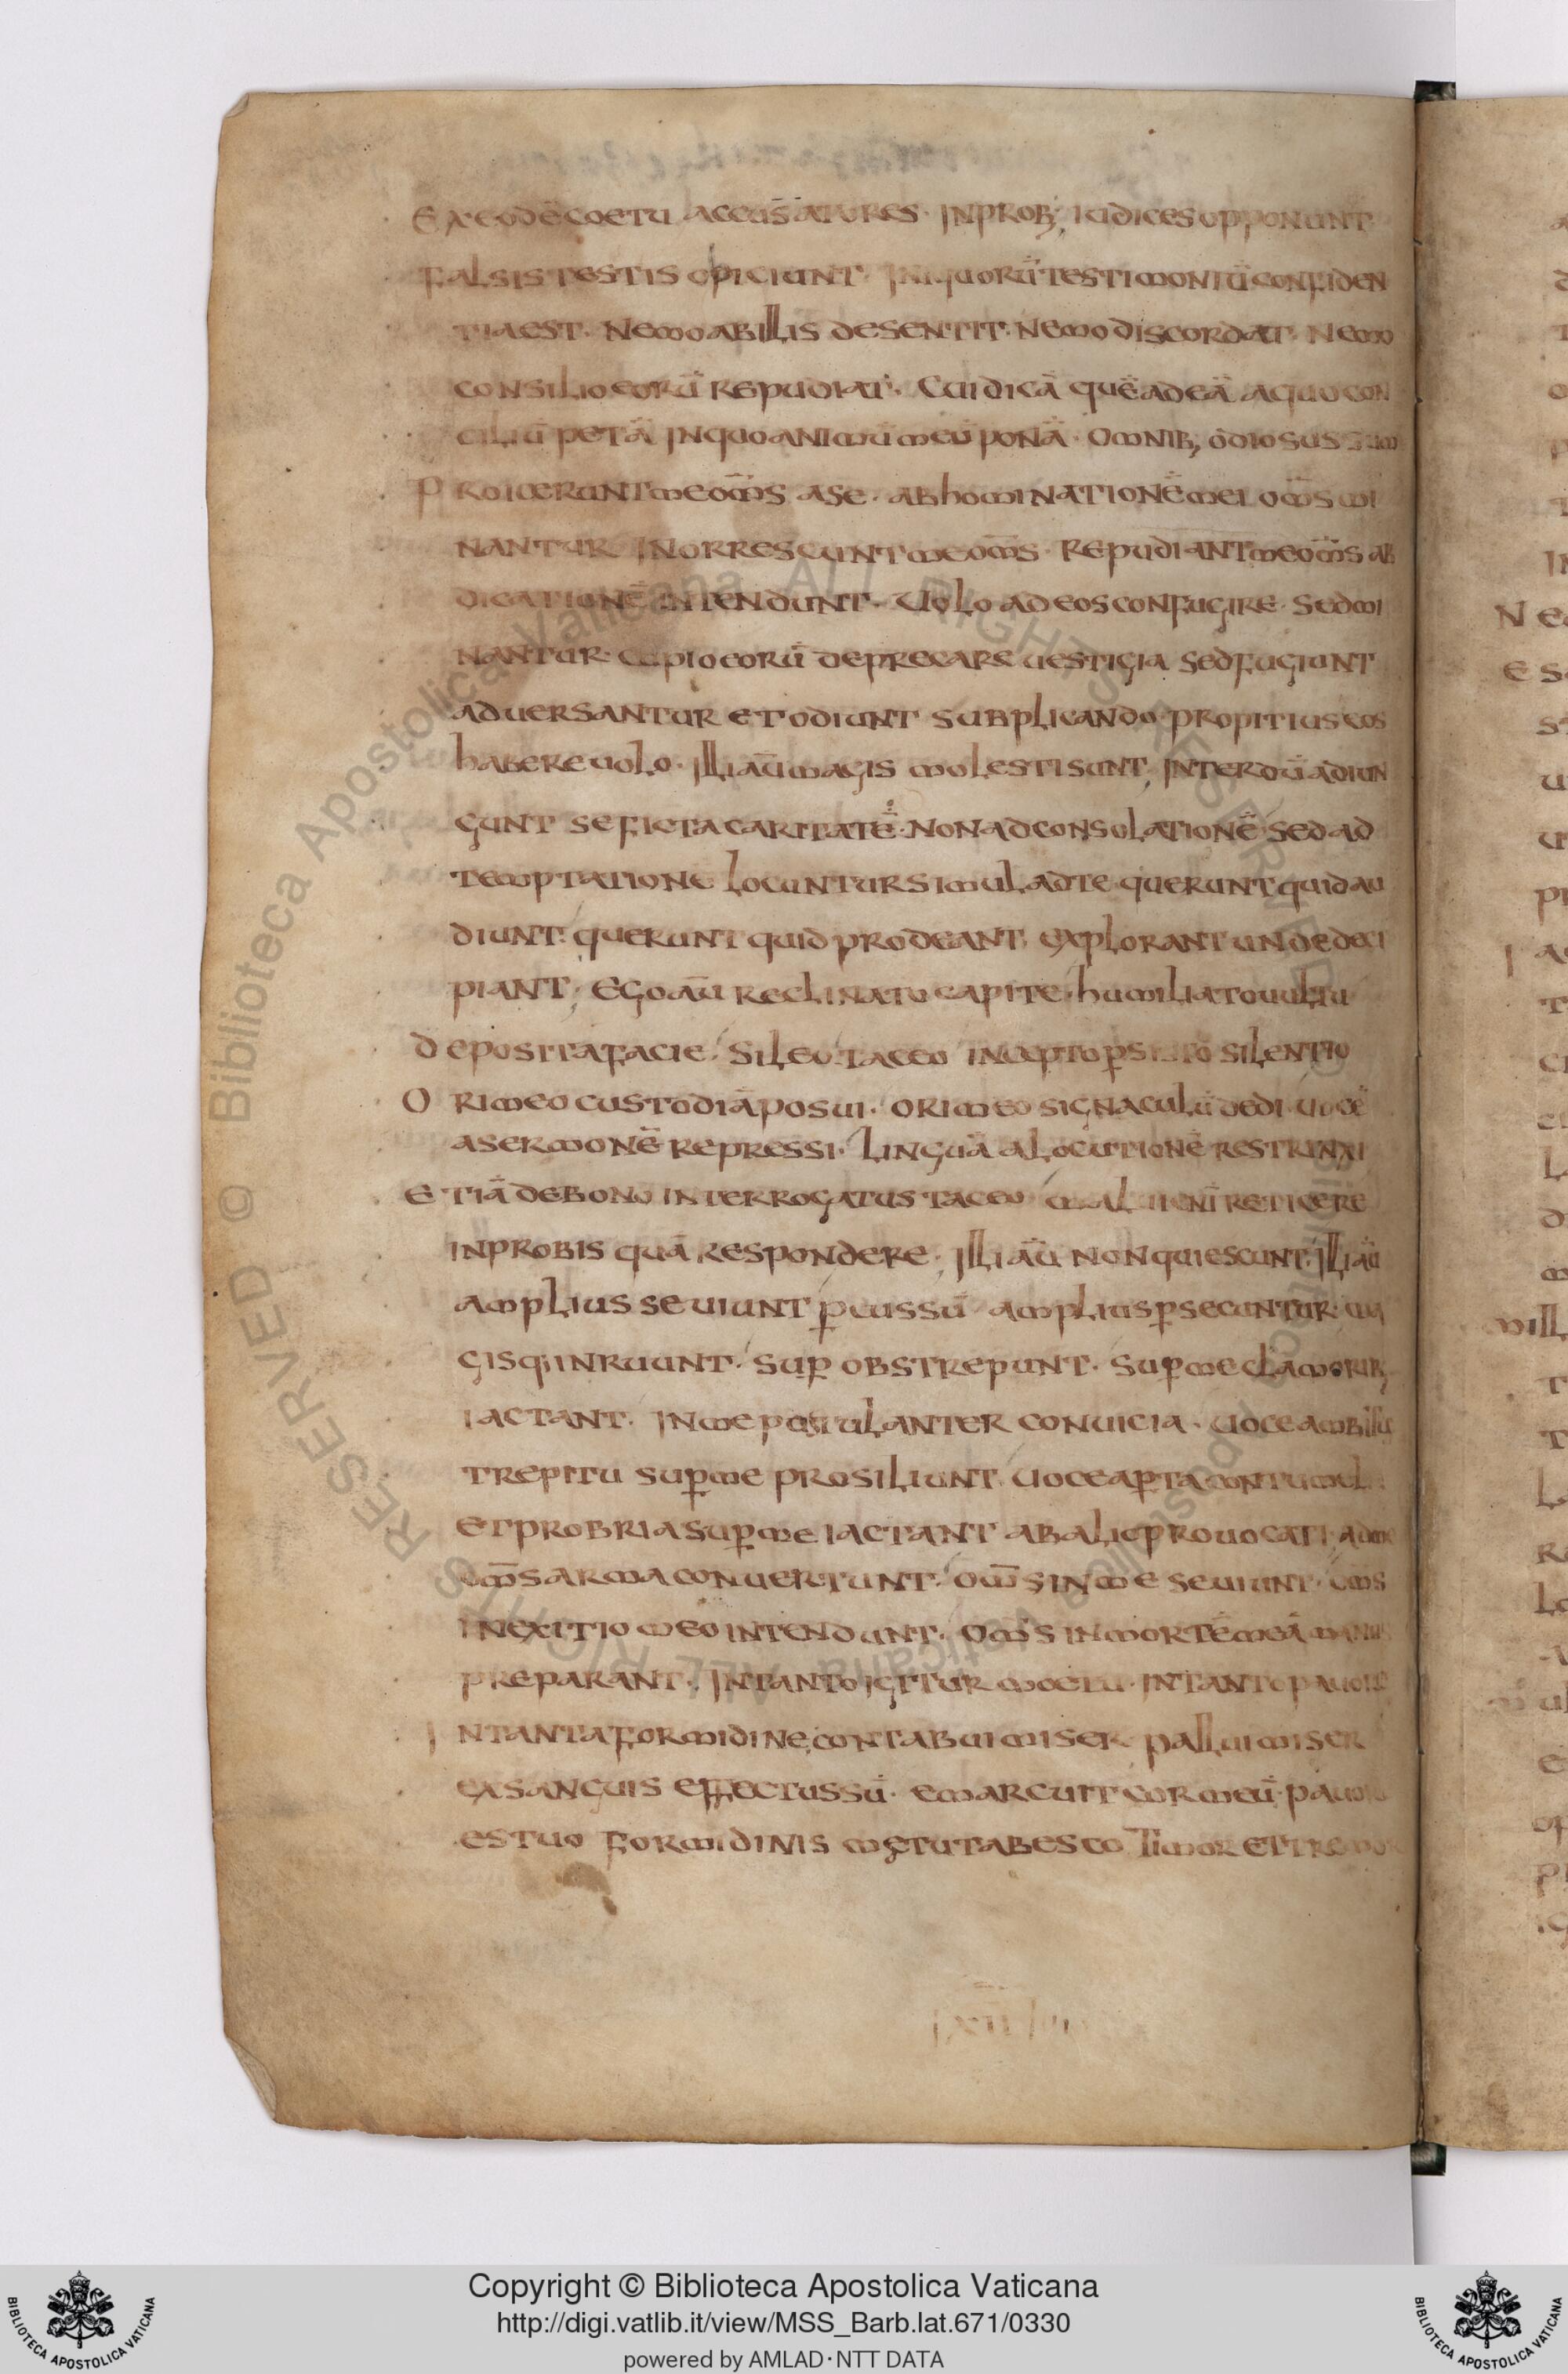 Ex eodē coetu accusatores · Inprob; iudices opponunt
Falsis testis opiciunt · In quorū testimoniū confiden
tia est · Nemo ab illis desentit · Nemo discordat · Nemo
consilio eorū repudiat · Cui dicā quē adeā a quo con
ciliū petā in quo animū meū ponā · Omnib; odiosus sum
Proiecerunt me om̄s a se · abhominationē mei om̄s mi
nantur Inorrescunt me om̄s · Repudiant me om̄s ab
dicationē intendunt · Uolo ad eos confugire · sed mi
nantur · cupio eorū deprecare uestigia sed fugiunt
aduersantur et odiunt subplicando propitius eos
habere uolo · Illi aū magis molesti sunt, Interdū adiun
gunt se ficta caritatē · Non ad consolationē sed ad
temptatione locuntur simul ad te querunt quid au
diunt · querunt quid prodeant, explorant unde deci
piant; Ego aū reclinato capite · humiliato uultu
Deposita facie · Sileo · taceo incepto silentio
Ori meo custodiā posui · ori meo signaculū dedi · uocē
a sermonē repressi · Linguā a locutionē restrinxi
Etiā de bono interrogatus taceo reticere
inprobis quā respondere · Illi aū non quiescunt · Illi aū
amplius seuiunt ꝑcussū amplius ꝑsecuntur · ma
gisq; inruunt · Suꝑ obstrepunt · Suꝑ me clamorib;
iactant · In me postulanter conuicia · Uoce ambi
trepitu suꝑ me prosiliunt Uoce aꝑta
et probria suꝑ me iactant ab alie prouocati · ad me
om̄s arma conuertunt · om̄s in me seuiunt · om̄s
in exitio meo intendunt · Om̄s in mortē meā manus
preparant · In tanto igitur moetu · In tanto pauore
In tanta formidine, contabui miser pallui miser
exsanguis effectus sū · emarcuit cor meū · pauore
estuo formidinis metu tabesco Timor et tremor
Copyright © Biblioteca Apostolica Vaticana
http://digi.vatlib.it/view/MSS_Barb.lat.671/0330
powered by AMLAD·NTT DATA